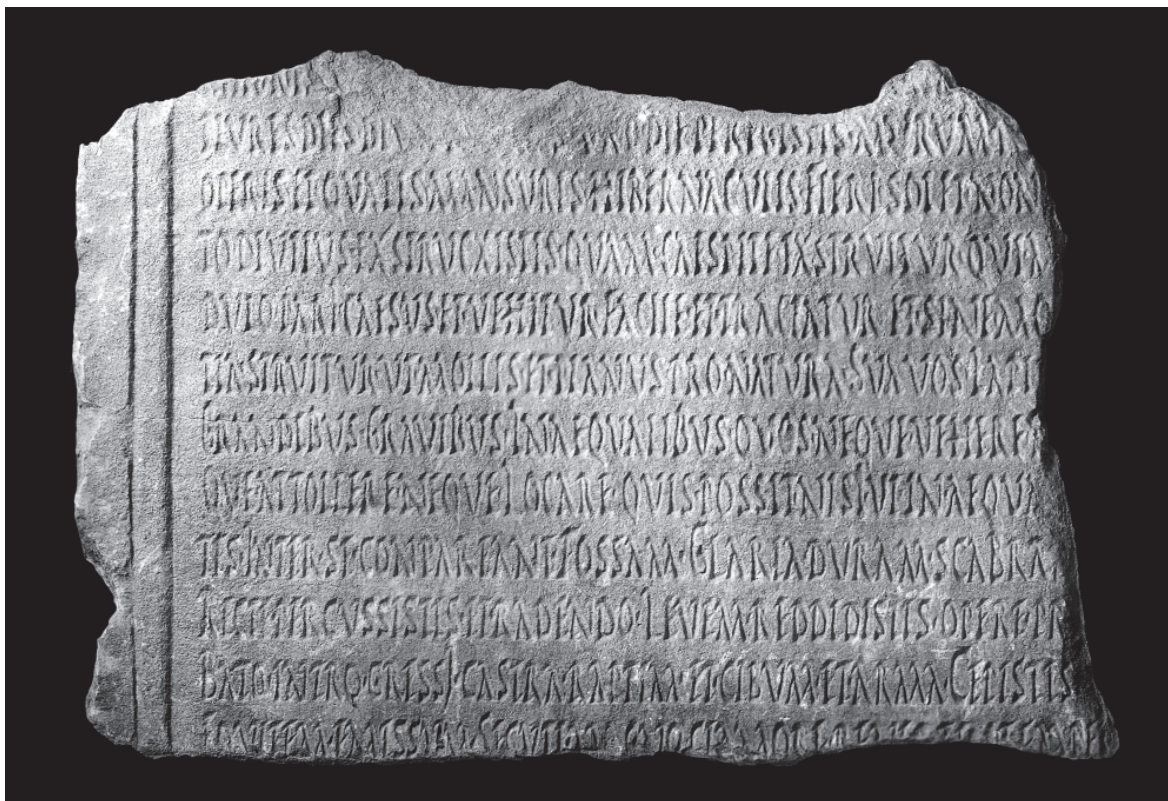 PLVRES DIES VNO DIE PEREGISTIS MVRVM
OPERIS ET QVALIS MANSVRIS HIBERNACVLIS FIERI SOLET NON
TO DIVTIVS EXSTRVCXISTIS QVAM CAESPITE EXSTRVITVR QVI M
DVLO PARI CAESVS ET VEHITVR FACILE ET TRACTATVR ET SINE MO
TIA STRVITVR VT MOLLIS ET PLANVS PRO NATVRA SVA VOS LAPI
GRANDIBVS GRAVIBVS INAEQVALIBVS QVOS NEQVE VEHERE
QVE ATTOLLERE NEQVE LOCARE QVIS POSSIT NISI VT INAEQVA
TES INTER SE CONPAREANT FOSSAM GLARIA DVRAM SCABRA
RECTE PERCVSSISTIS ET RADENDO LEVEM REDDIDISTIS OPERE PR
BATO INTROGRESSI CASTRA RAPTIM ET CIBVM ET ARMA CEPISTIS
EQVITEM SECVTI